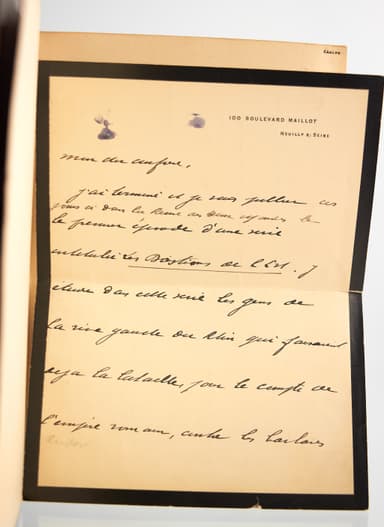 100 BOULEVARD MAILLOT
NEUILLY S/ SEINE
mon cher confrère,
j'ai terminé et je vais publier ces
jours ci dans la Revue des deux mondes le
le premier épisode d'une série
intitulée Les Bastions de l'Est. J
étudie dans cette série les gens de
la rive gauche du Rhin qui faisaient
deja la bataille, pour le compte de
l'empire romain, contre les barbares